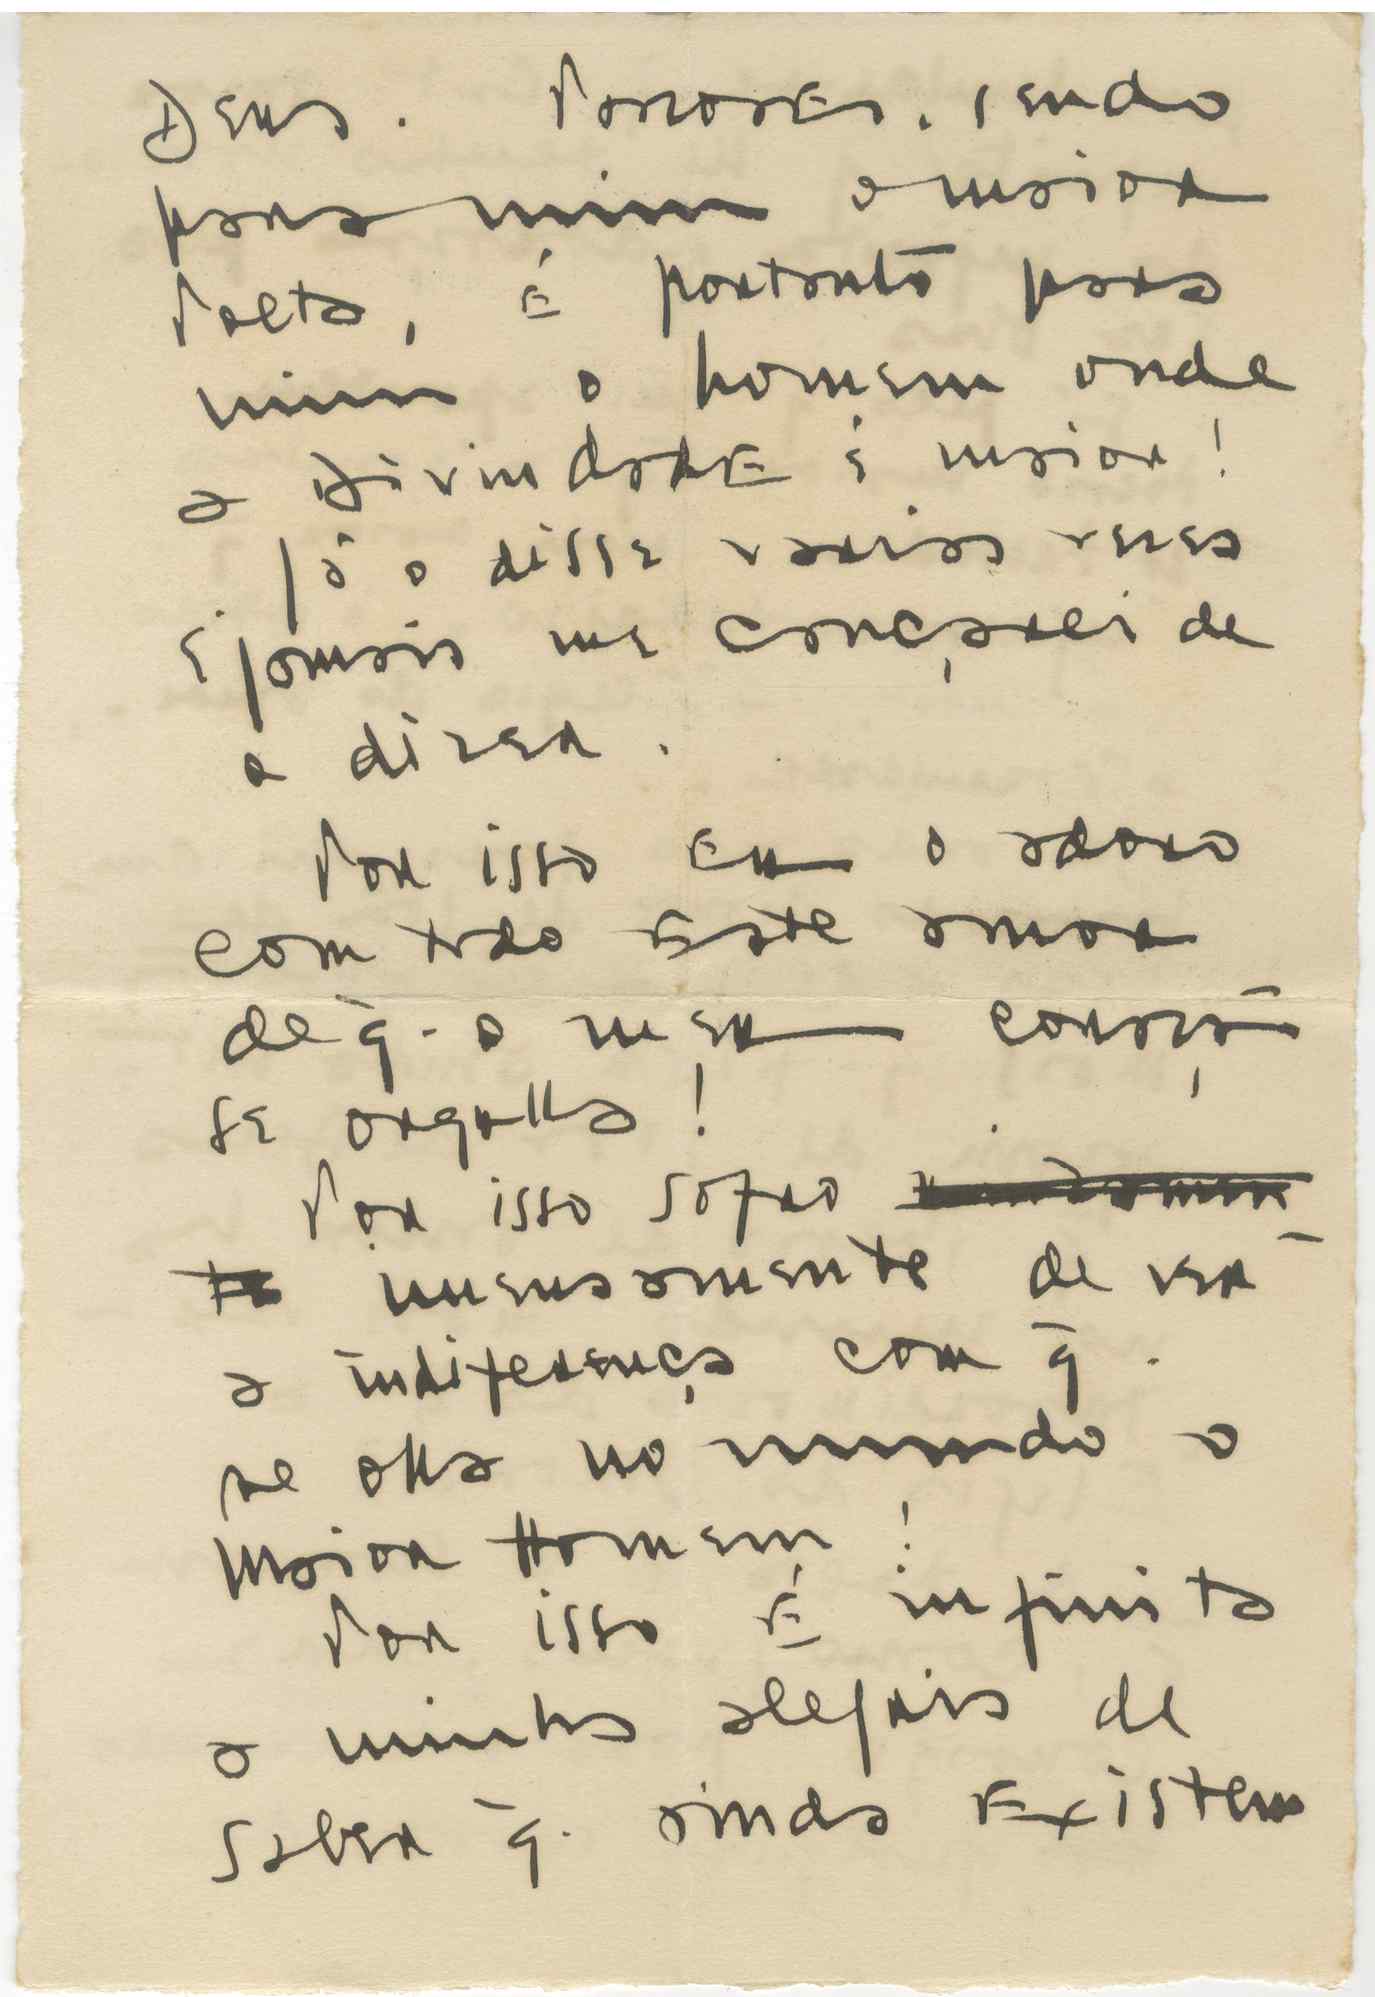 Deus. Pascoaes, sendo
para mim o maior
Poeta, é portantõ para
mim o homem onde
a Divindade é maior!
Já o disse varias vezes
E jamais me cançarei de
o dizer.
Por isso eu o adoro
com todo este amor
de q̄. o meu coraçã
se orgulha!
Por isso sofro
te imensamente de ver
a indiferença com q̄.
se olha no mundo o
Maior Homem!
Por isso É infinita
a minha alegria de
saber q̄. ainda existem